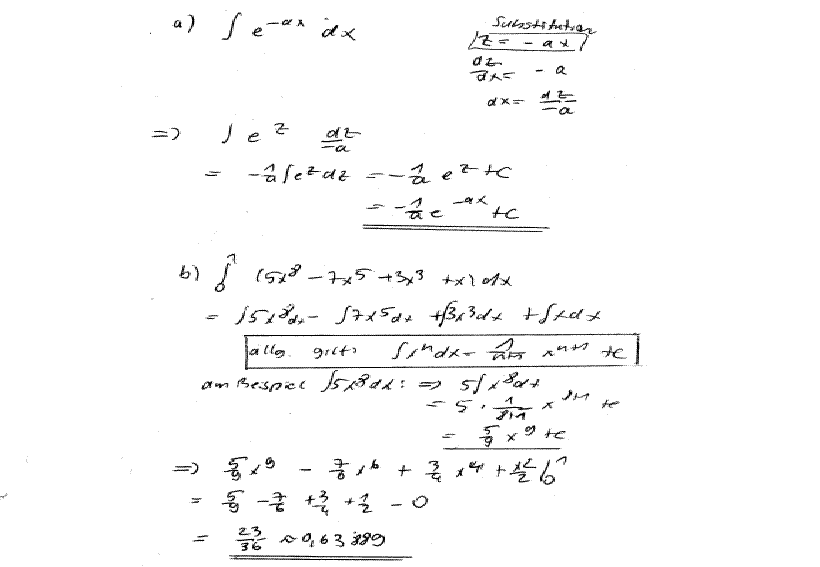 a) ∫ e^{-ax} dx
Substitution
z = -ax
dz/dx = -a
dx = dz/-a
=> ∫ e^z dz/-a
= -1/a ∫ e^z dz = -1/a e^z + C
= -1/a e^{-ax} + C
b) ∫_0^1 (5x^8 - 7x^5 + 3x^3 + x) dx
= ∫5x^8dx - ∫7x^5dx + ∫3x^3dx + ∫xdx
allg. gilt: ∫x^n dx = 1/(n+1) x^{n+1} + C
am Bespiel ∫5x^8dx: => 5∫x^8dx
= 5 · 1/(8+1) x^{8+1} + C
= 5/9 x^9 + C
=> 5/9 x^9 - 7/6 x^6 + 3/4 x^4 + x^2/2 |_0^1
= 5/9 - 7/6 + 3/4 + 1/2 - 0
= 23/36 ≈ 0,63889